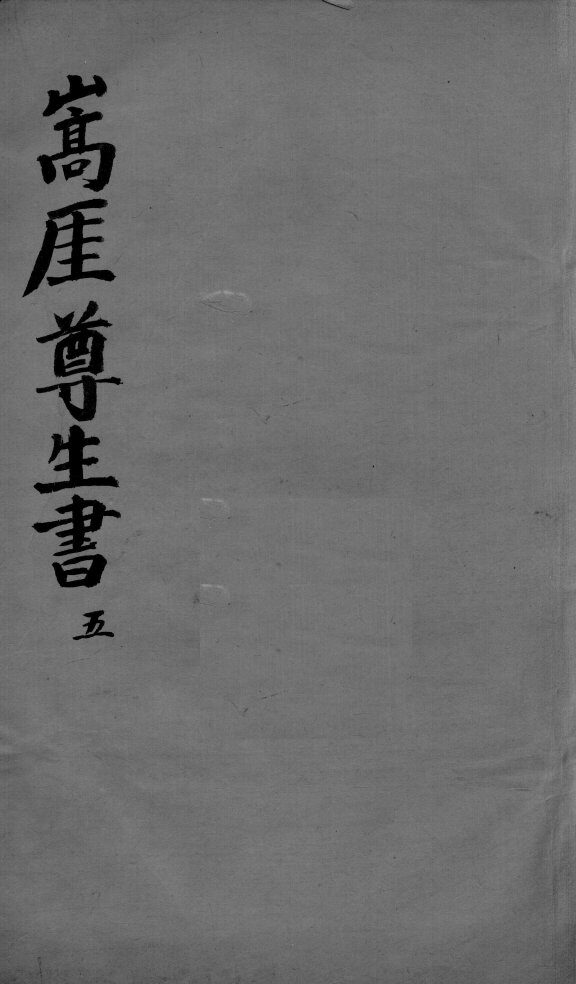 嵩厓尊生書
五